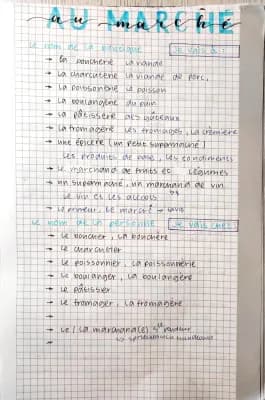 AU MARCHÉ
au marché
le nom de la boutique Je vais à :
→ la boucherie la viande
→ la charcuterie la viande de porc,
→ la poissonerie le poisson
→ la boulangerie du pain
→ la pâtisserie des gâteaux
→ la fromagerie les fromages, la crèmerie
→ une épicerie (un petit supermarché)
les produits de base, les condiments
→ le marchand de fruits et légumes
→ un supermarché, un marchand de vin
le vin et les alcools
→ le primeur, le marché
le nom de la personne Je vais chez :
→ le boucher, la bouchère
→ le charcutier
→ le poissonnier, la poissonnerie
→ le boulanger, la boulangère
→ le pâtissier
→ le fromager, la fromagère
→
→ le / la marchand(e)
→